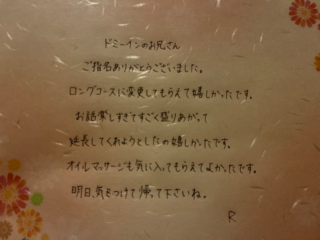 ドミーインのお兄さん
ご指名ありがとうございました。
ロングコースに変更してもらえて嬉しかったです。
お話楽しすぎてすごく盛りあがって
延長してくれようとしたの嬉しかったです。
オイルマッサージも気に入ってもらえてよかったです。
明日、気をつけて帰って下さいね。
R